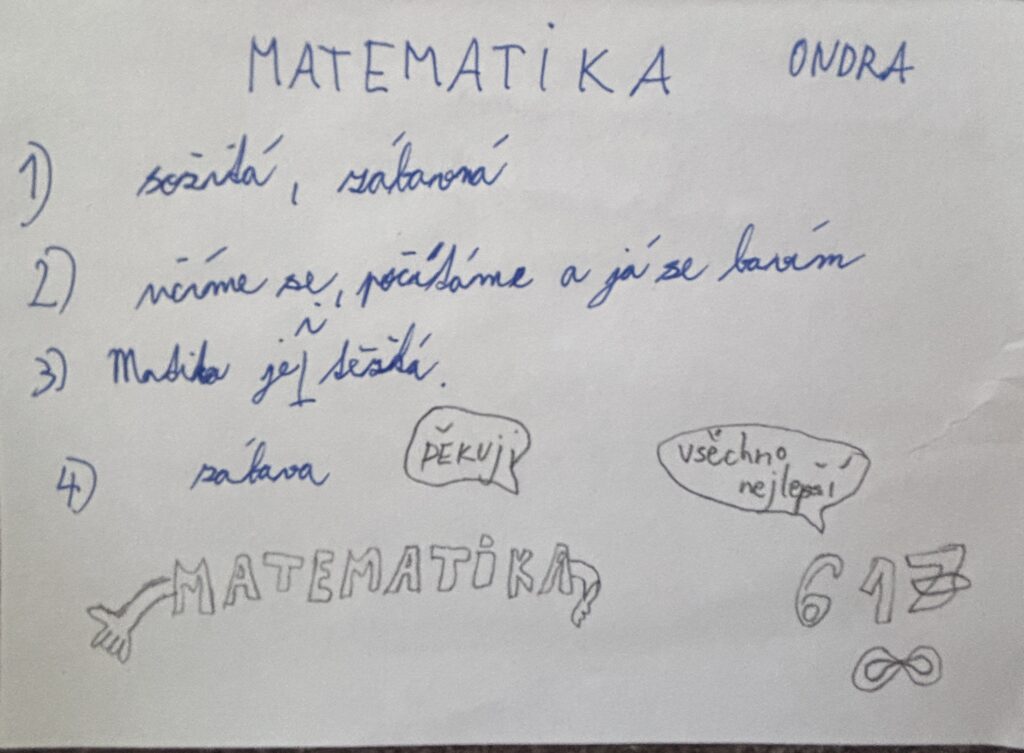 MATEMATIKA ONDRA
1) sožitá, zábavná
2) učíme se, počítáme a já se bavím
3) Matika je těžká.
4) zábava
DĚKUJI
všechno
nejlepší
MATEMATIKA
6 1
∞